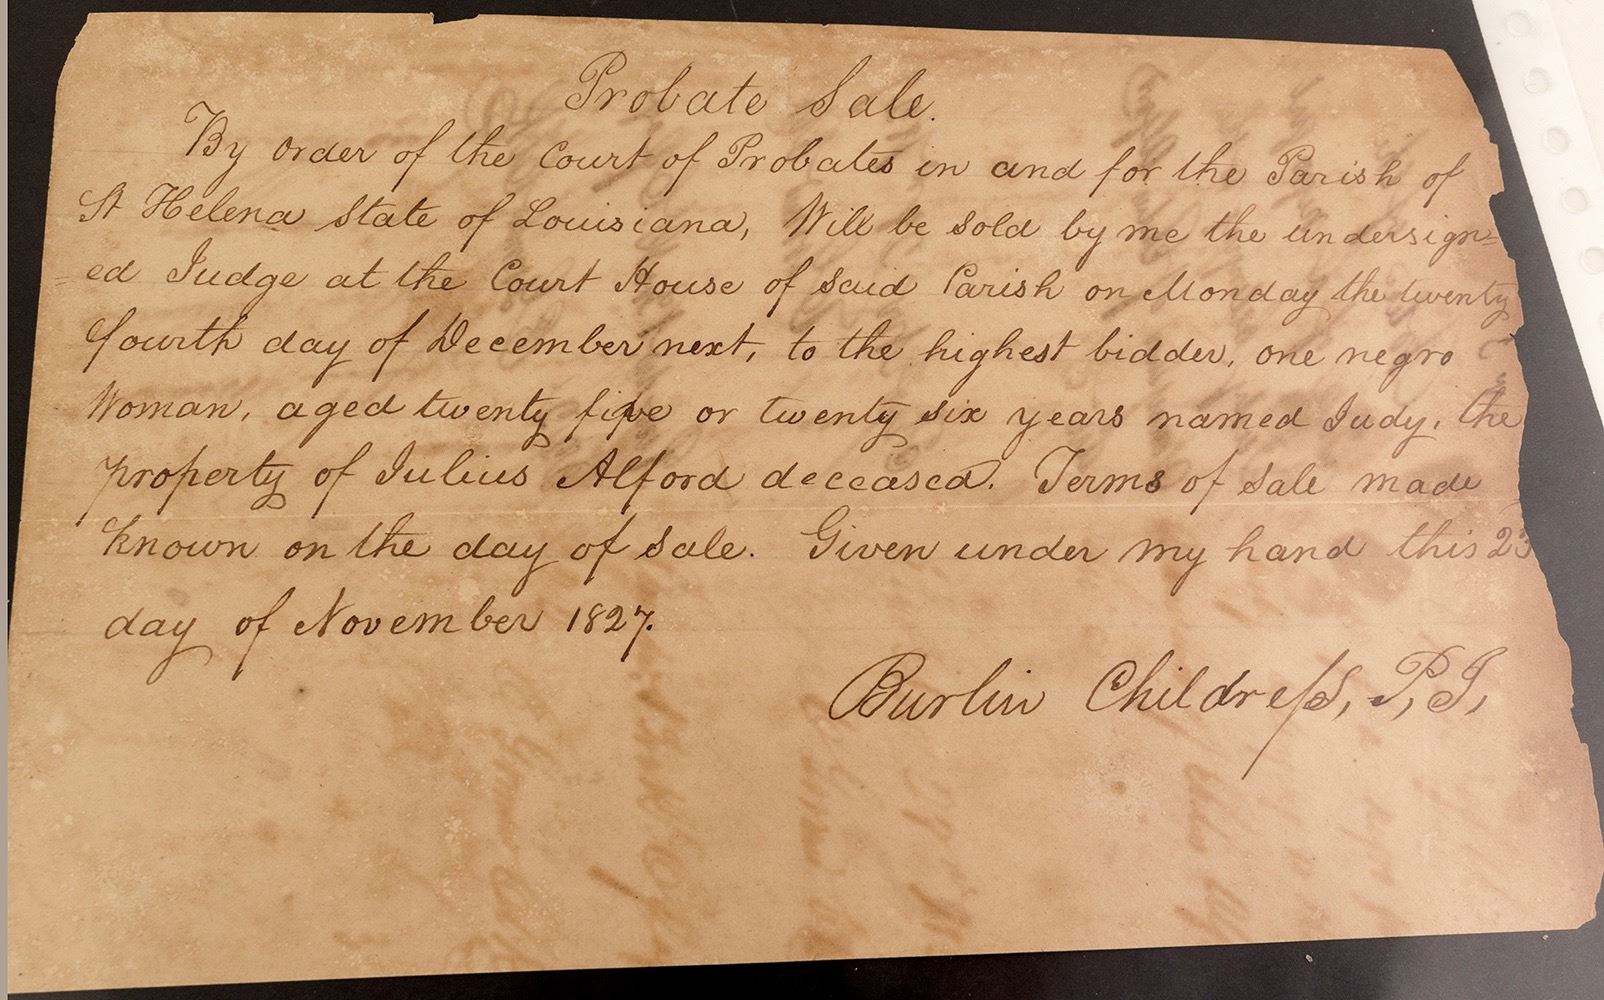 Probate Sale.
By order of the Court of Probates in and for the Parish of
St Helena State of Louisiana, Will be sold by me the undersign=
=ed Judge at the Court House of said Parish on Monday the twenty
fourth day of December next, to the highest bidder, one negro
Woman, aged twenty five or twenty six years named Judy, the
property of Julius Alford deceased. Terms of sale made
known on the day of sale. Given under my hand this 23
day of November 1827.
Burlin Childress, P, J,